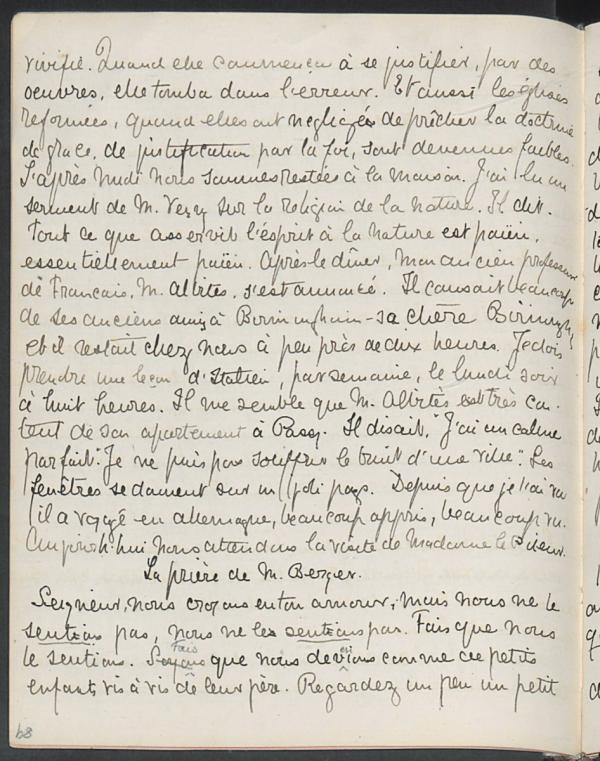 vivifie. Quand elle commença à se justifier, par des
oeuvres, elle tomba dans l'erreur. Et aussi les églises
reformées, quand elles ont négligées de prêcher la doctrine
de grace, de justification par la foi, sont devenues faibles.
L'après midi nous sommes restées à la maison. J'ai lu un
serment de M. Very sur la religion de la nature. Il dit.
Tout ce que asservit l'ésprit à la nature est païen,
essentiellement païen. Après le dîner, mon ancien professeur
de Français, M. Albitès, s'est annoncé. Il causait beaucoup
de ses anciens amis à Birmingham - sa chère Birmingh,
et il restait chez nous à peu près de deux heures. Je dois
prendre une leçon d'Italien, par semaine, le lundi soir
à huit heures. Il me semble que M. Albitès est très con-
tent de son apartement à Passy. Il disait, "J'ai un calme
parfait. Je ne puis pas souffrir le bruit d'une ville". Les
fenêtres se donnent sur un joli pays. Depuis que je l'ai vu
il a voyagé en allemagne, beaucoup appris, beaucoup vu.
Aujourd'hui nous attendons la visite de Madame le
La prière de M. Berger.
Seigneur, nous croyons en ton amour, mais nous ne le
sentions pas, nous ne les sentions pas. Fais que nous
le sentions. Soyons Fais que nous devions comme ce petits
enfants vis à vis de leur père. Regardez un peu un petit
68